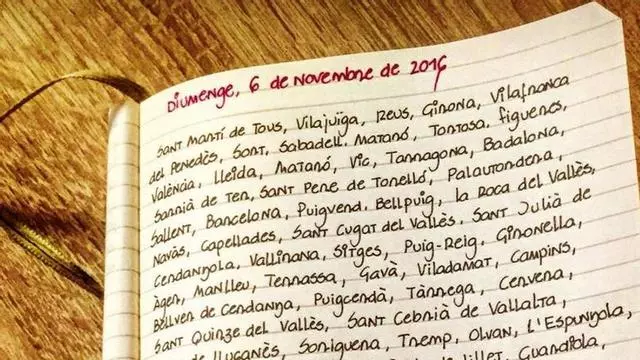 Diumenge, 6 de novembre de 2016
Sant Martí de Tous, Vilajuïga, Reus, Girona, Vilafranca
del Penedès, Sort, Sabadell, Mataró, Tortosa, Figueres,
València, Lleida, Mataró, Vic, Tarragona, Badalona,
Sarrià de Ter, Sant Pere de Torelló, Palautordera,
Sallent, Barcelona, Puigverd, Bellpuig, la Roca del Vallès,
Navàs, Capellades, Sant Cugat del Vallès, Sant Julià de
Cerdanyola, Vallirana, Sitges, Puig-Reig, Gironella,
Àger, Manlleu, Terrassa, Gavà, Viladamat, Campins,
Bellver de Cerdanya, Puigcerdà, Tàrrega, Cervera,
Sant Quirze del Vallès, Sant Cebrià de Vallalta,
de Lluçanès, Soriguera, Tremp, Olvan, L'Espunyola,
de Lillet, Guardiola,